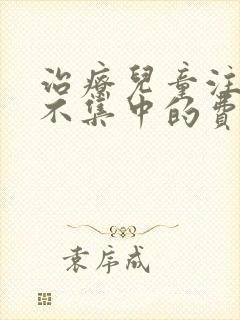 治療兒童注
不集中的費
袁序成